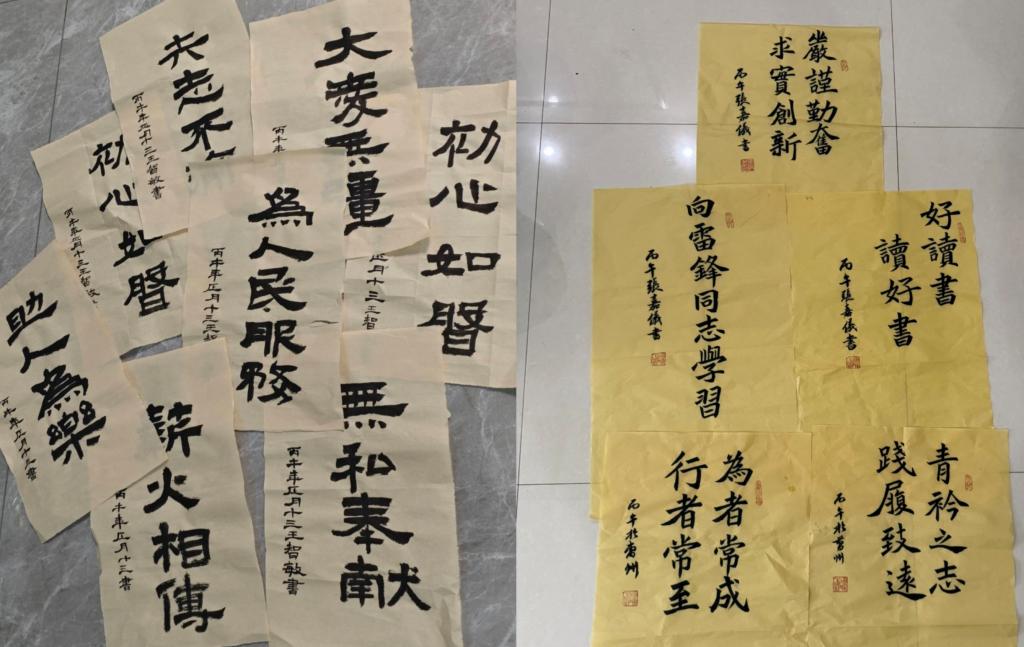 矢志不
丙午年正月十三王智敏書
大爱無
丙午年
正月十三王智
初心如
初心如
丙午年正月十三王智敏
為人民服務
丙午年正月十三王智
助人為樂
丙午年正月十三書
薪火相傳
丙午年正月十三書
無私奉献
丙午年正月十三王智敏書
嚴謹勤奮
求實創新
丙午張嘉儀書
向雷鋒同志學習
丙午張嘉儀書
好讀書
讀好書
丙午張嘉儀書
為者常成
行者常至
丙午於州
青衿之志
踐履致遠
丙午於州